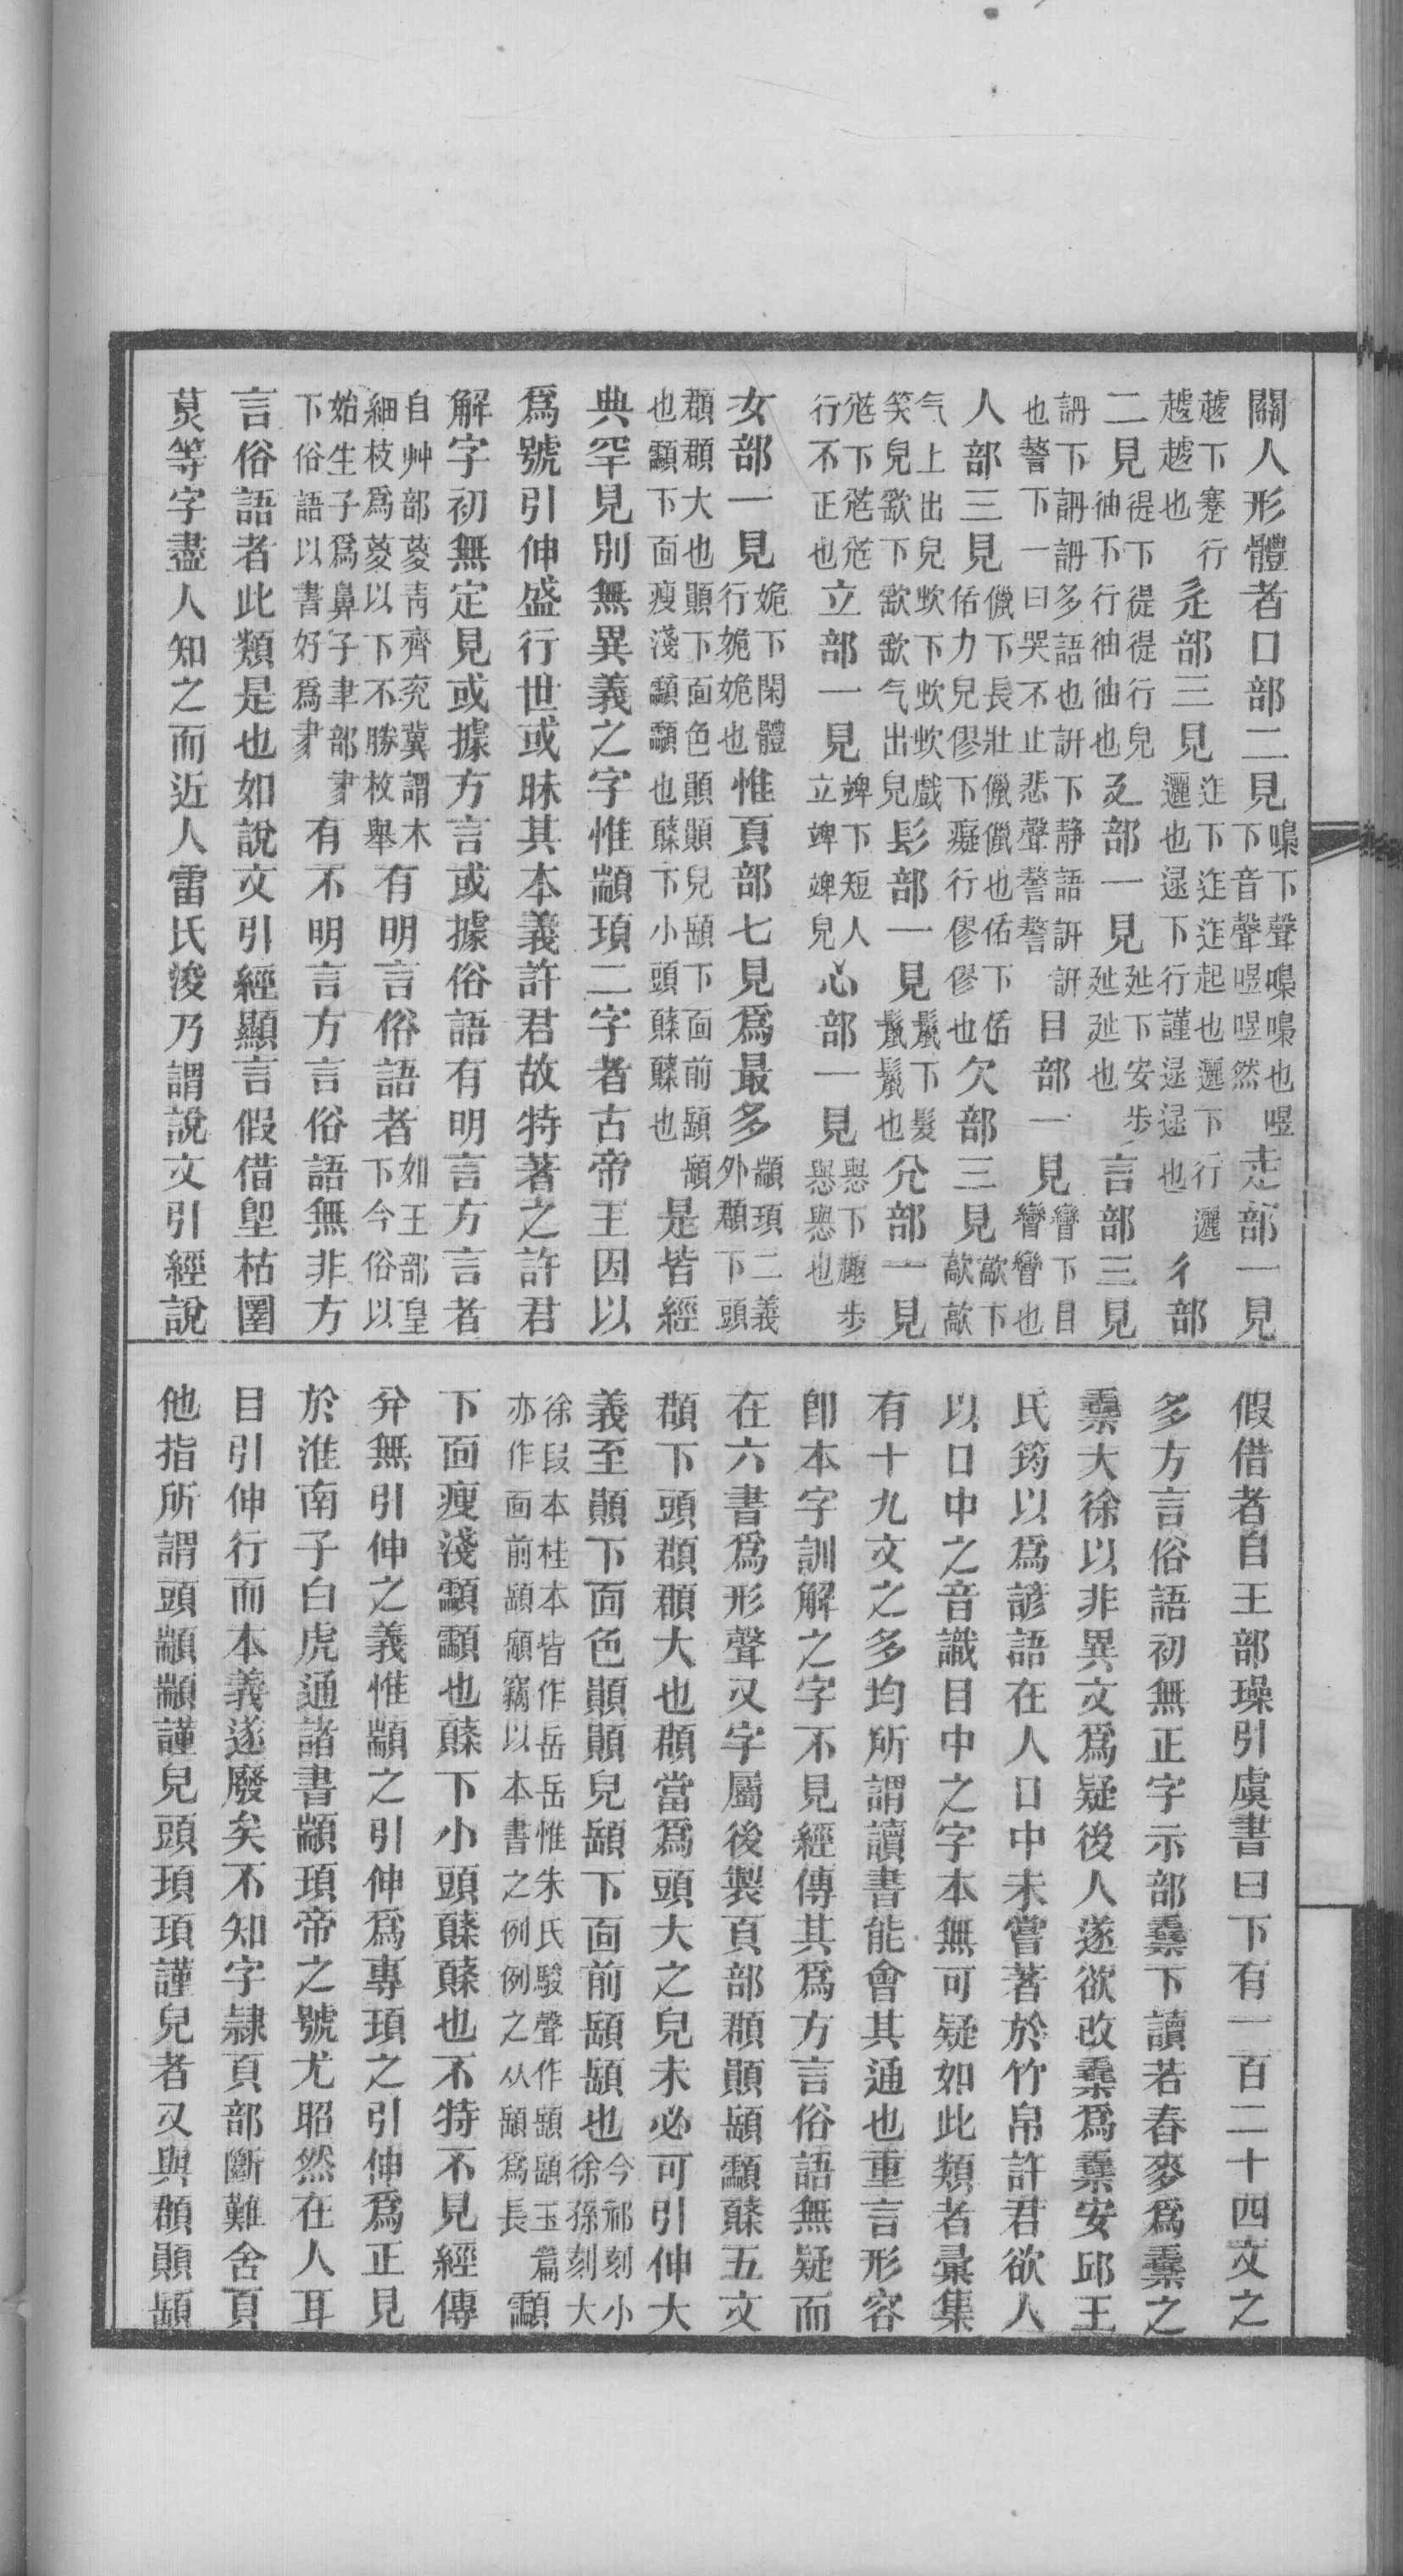 關人形體者口部二見嘄下聲嘄嘄也喅下音聲喅喅然走部一見
下蹇行也辵部三見迮下迮迮起也邐下行邐邐也逯下行謹逯逯也彳部
二見徥下徥徥行皃㣙下行㣙㣙也廴部一見㢟下安步㢟㢟也言部三見
䛁下䛁䛁多語也訮下諍語訮訮也謷下一曰哭不止悲聲謷謷目部一見矕下目矕矕也
人部三見儠下長壯儠儠也佸下佸佸力皃僇下癡行僇僇也欠部三見歊下歊歊
气上出皃㰞下㰞㰞戲笑皃下气出皃髟部一見鬛下髮鬛鬛也尣部一見
下行不正也立部一見䇑下短人立䇑䇑皃心部一見懙下趣步懙懙也
女部一見姽下閑體行姽姽也惟頁部七見爲最多顓頊二義外頵下頭
頵頵大也䫟下面色䫟䫟皃下面前也下面瘦淺也䫌下小頭䫌䫌也是皆經
典罕見別無異義之字惟顓頊二字者古帝王因以
爲號引伸盛行世或昧其本義許君故特著之許君
解字初無定見或據方言或據俗語有明言方言者
自艸部䔖青齊兖冀謂木細枝爲䔖以下不勝枚舉有明言俗語者如王部皇下今俗以
始生子爲鼻子聿部𦘔下俗語以書好爲𦘔有不明言方言俗語無非方
言俗語者此類是也如說文引經顯言假借堲枯圛
莫等字盡人知之而近人雷氏浚乃謂說文引經說
假借者自王部璪引虞書曰下有一百二十四文之
多方言俗語初無正字示部下讀若春麥爲之
大徐以非異文爲疑後人遂欲改爲安邱王
氏筠以爲諺語在人口中未嘗著於竹帛許君欲人
以口中之音識目中之字本無可疑如此類者彙集
有十九文之多均所謂讀書能會其通也重言形容
卽本字訓解之字不見經傳其爲方言俗語無疑而
在六書爲形聲又字屬後製頁部頵䫟䫌五文
頵下頭頵頵大也頵當爲頭大之皃未必可引伸大
義至䫟下面色䫟䫟皃下面前也今祁刻小徐孫刻大
徐段本桂本皆作岳岳惟朱氏駿聲作玉篇亦作面前竊以本書之例例之从爲長
下面瘦淺也䫌下小頭䫌䫌也不特不見經傳
并無引伸之義惟顓之引伸爲專頊之引伸爲正見
於淮南子白虎通諸書顓頊帝之號尤昭然在人耳
目引伸行而本義遂廢矣不知字隸頁部斷難舍頁
他指所謂頭顓顓謹皃頭頊頊謹皃者又與頵䫟